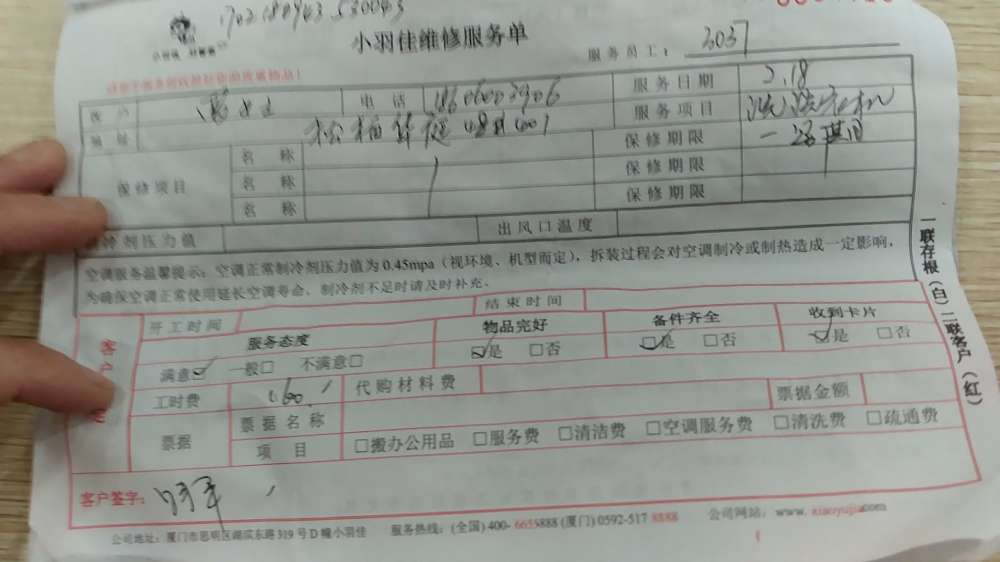 小羽佳维修服务单
服务员工: 3037
客户 电话 服务日期 2.18
地址 松柏 服务项目
保修项目 名称 保修期限
名称 保修期限
名称 保修期限
制冷剂压力值 出风口温度
空调服务温馨提示:空调正常制冷剂压力值为0.45mpa(视环境、机型而定),拆装过程会对空调制冷或制热造成一定影响,
为确保空调正常使用延长空调寿命、制冷剂不足时请及时补充。
开工时间 结束时间
服务态度 物品完好 备件齐全 收到卡片
满意☑ 一般□ 不满意□ ☑是 □否 ☑是 □否 ☑是 □否
工时费 160 代购材料费
票据 票据名称 票据金额
项目 □搬办公用品 □服务费 □清洁费 □空调服务费 □清洗费 □疏通费
客户签字:
公司地址:厦门市思明区湖滨东路319号D幢小羽佳 服务热线:(全国)400-6655888 (厦门)0592-5178888 公司网站:www.xiaoyujia.com
一联存根(白)二联客户(红)